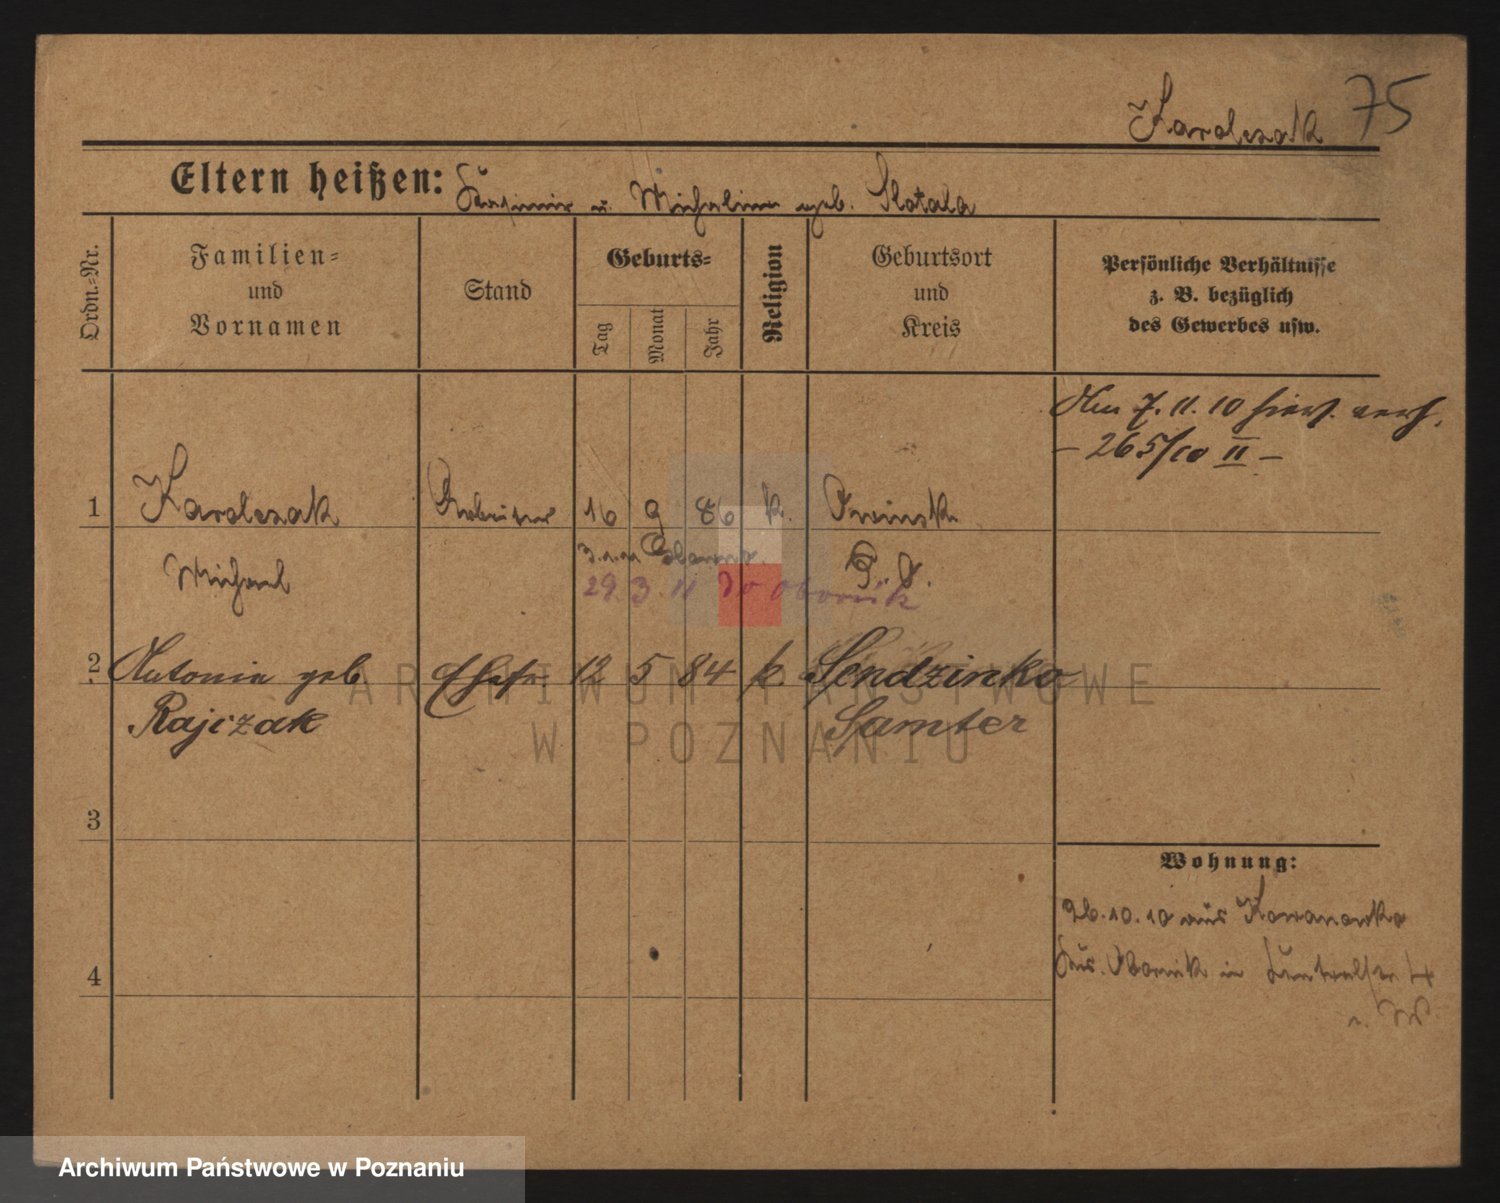 Karolczak 75
Eltern heißen: Kasimir u. Michalina geb. Slotala
Ordn.-Nr.
Familien-
und
Vornamen
Stand
Geburts-
Tag
Monat
Jahr
Religion
Geburtsort
und
Kreis
Persönliche Verhältnisse
z. B. bezüglich
des Gewerbes usw.
Am 7. 11. 10 hier verh.
- 265/10 II -
1 Karolczak Arbeiter 16 9 86 k. Owinsk
Michael
3.1.11
P. O.
29. 3. 11 Obornik
2 Antonie geb. Ehefr. 12 5 84 k. Sendzinko
Rajczak Samter
3
4
Wohnung:
26.10.10 aus Kowanowko
Krs. Obornik in
ARCHIWUM PAŃSTWOWE
W POZNANIU
Archiwum Państwowe w Poznaniu